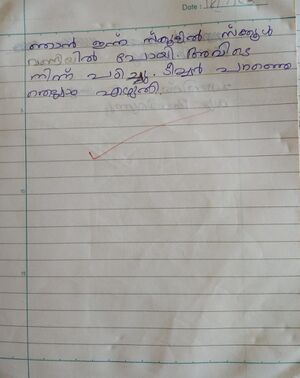 Date :
ഞാൻ ഇന്ന് സ്കൂളിൽ സ്കൂൾ
വണ്ടിയിൽ പോയി. അവിടെ
നിന്ന് പഠിച്ചു. ടീച്ചർ പറഞ്ഞെ
എഴുതി